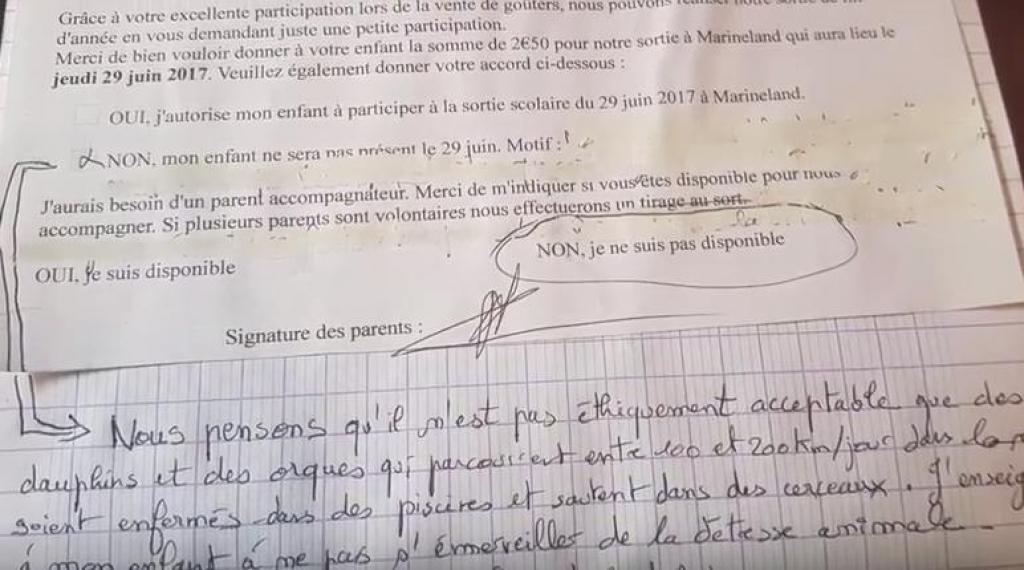 Grâce à votre excellente participation lors de la vente de goûters, nous pouvons
d'année en vous demandant juste une petite participation.
Merci de bien vouloir donner à votre enfant la somme de 2€50 pour notre sortie à Marineland qui aura lieu le
jeudi 29 juin 2017. Veuillez également donner votre accord ci-dessous :
OUI, j'autorise mon enfant à participer à la sortie scolaire du 29 juin 2017 à Marineland.
NON, mon enfant ne sera pas présent le 29 juin. Motif :
J'aurais besoin d'un parent accompagnateur. Merci de m'indiquer si vous êtes disponible pour nous
accompagner. Si plusieurs parents sont volontaires nous effectuerons un tirage au sort.
OUI, je suis disponible
NON, je ne suis pas disponible
Signature des parents :
Nous pensons qu'il n'est pas éthiquement acceptable que des
dauphins et des orques qui parcourent entre 100 et 200 km/jour dans la
soient enfermés dans des piscines et sautent dans des cerceaux. J'enseig
à mon enfant à ne pas s'émerveiller de la détresse animale.